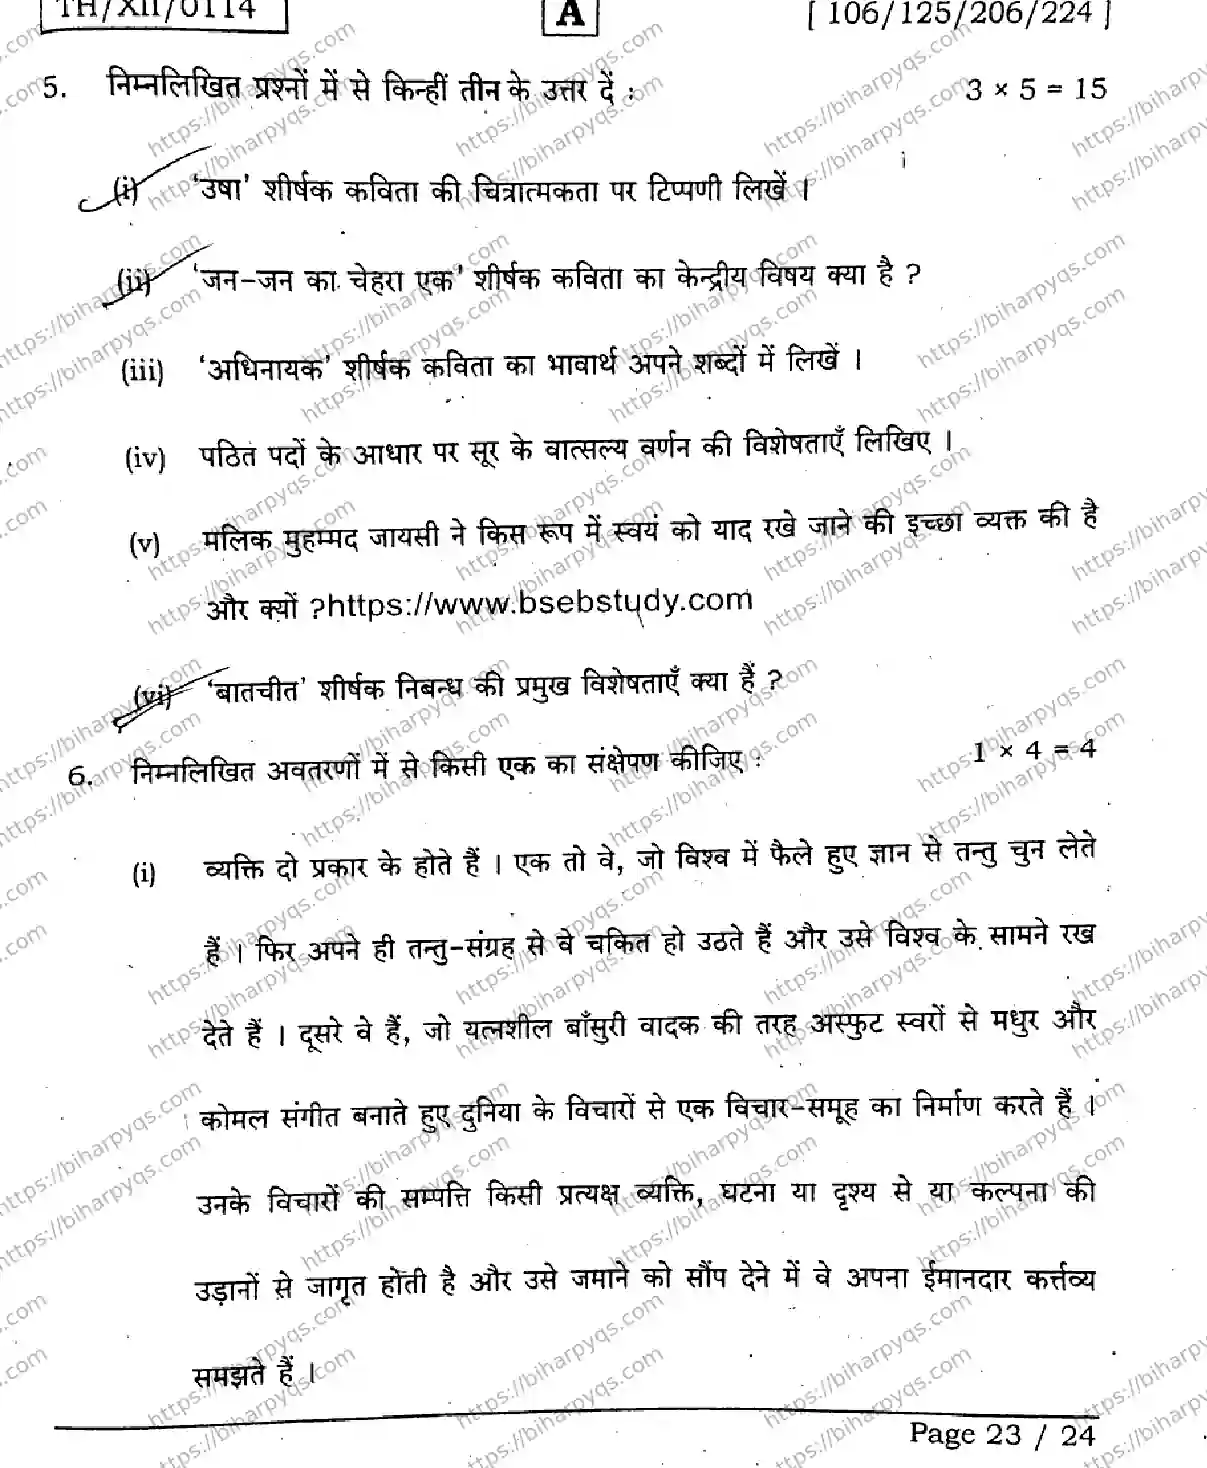 TH/XII/0114 A [ 106/125/206/224 ]
5. निम्नलिखित प्रश्नों में से किन्हीं तीन के उत्तर दें : 3 × 5 = 15
(i) 'उषा' शीर्षक कविता की चित्रात्मकता पर टिप्पणी लिखें ।
(ii) 'जन-जन का चेहरा एक' शीर्षक कविता का केन्द्रीय विषय क्या है ?
(iii) 'अधिनायक' शीर्षक कविता का भावार्थ अपने शब्दों में लिखें ।
(iv) पठित पदों के आधार पर सूर के वात्सल्य वर्णन की विशेषताएँ लिखिए ।
(v) मलिक मुहम्मद जायसी ने किस रूप में स्वयं को याद रखे जाने की इच्छा व्यक्त की है
और क्यों ?https://www.bsebstudy.com
(vi) 'बातचीत' शीर्षक निबन्ध की प्रमुख विशेषताएँ क्या हैं ?
6. निम्नलिखित अवतरणों में से किसी एक का संक्षेपण कीजिए : 1 × 4 = 4
(i) व्यक्ति दो प्रकार के होते हैं । एक तो वे, जो विश्व में फैले हुए ज्ञान से तन्तु चुन लेते
हैं । फिर अपने ही तन्तु-संग्रह से वे चकित हो उठते हैं और उसे विश्व के सामने रख
देते हैं । दूसरे वे हैं, जो यत्नशील बाँसुरी वादक की तरह अस्फुट स्वरों से मधुर और
कोमल संगीत बनाते हुए दुनिया के विचारों से एक विचार-समूह का निर्माण करते हैं ।
उनके विचारों की सम्पत्ति किसी प्रत्यक्ष व्यक्ति, घटना या दृश्य से या कल्पना की
उड़ानों से जागृत होती है और उसे जमाने को सौंप देने में वे अपना ईमानदार कर्त्तव्य
समझते हैं ।
Page 23 / 24
https://biharpyqs.com